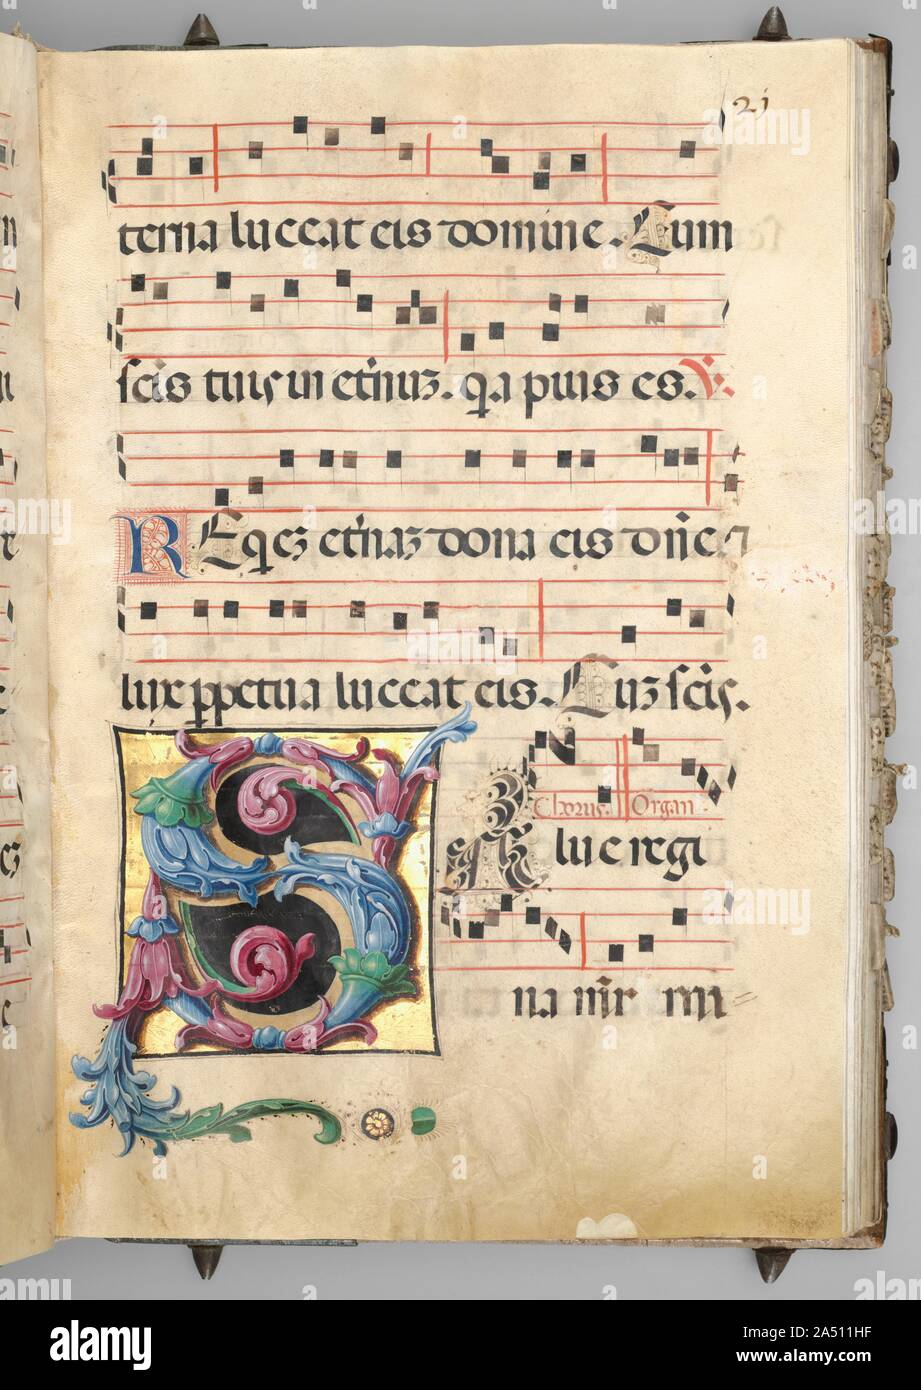 21
terna luceat eis domine. Cum
scis tuis in eternuz. qa pius es. V.
REqez eternaz dona eis dne &
lux ppetua luceat eis. Cuz scis.
Chorus. Organ.
S Alue regi
na mir mi=
alamy
Image ID: 2A511HF
www.alamy.com